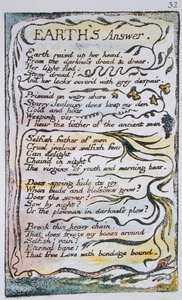 32
EARTH'S Answer.
Earth rais'd up her head,
From the darkness dread & drear.
Her light fled:
Stony dread!
And her locks cover'd with grey despair.
Prison'd on watry shore
Starry Jealousy does keep my den
Cold and hoar
Weeping o'er
I hear the father of the ancient men
Selfish father of men
Cruel jealous selfish fear
Can delight
Chain'd in night
The virgins of youth and morning bear.
Does spring hide its joy
When buds and blossoms grow?
Does the sower?
Sow by night?
Or the plowman in darkness plow?
Break this heavy chain,
That does freeze my bones around
Selfish! vain!
Eternal bane!
That free Love with bondage bound.